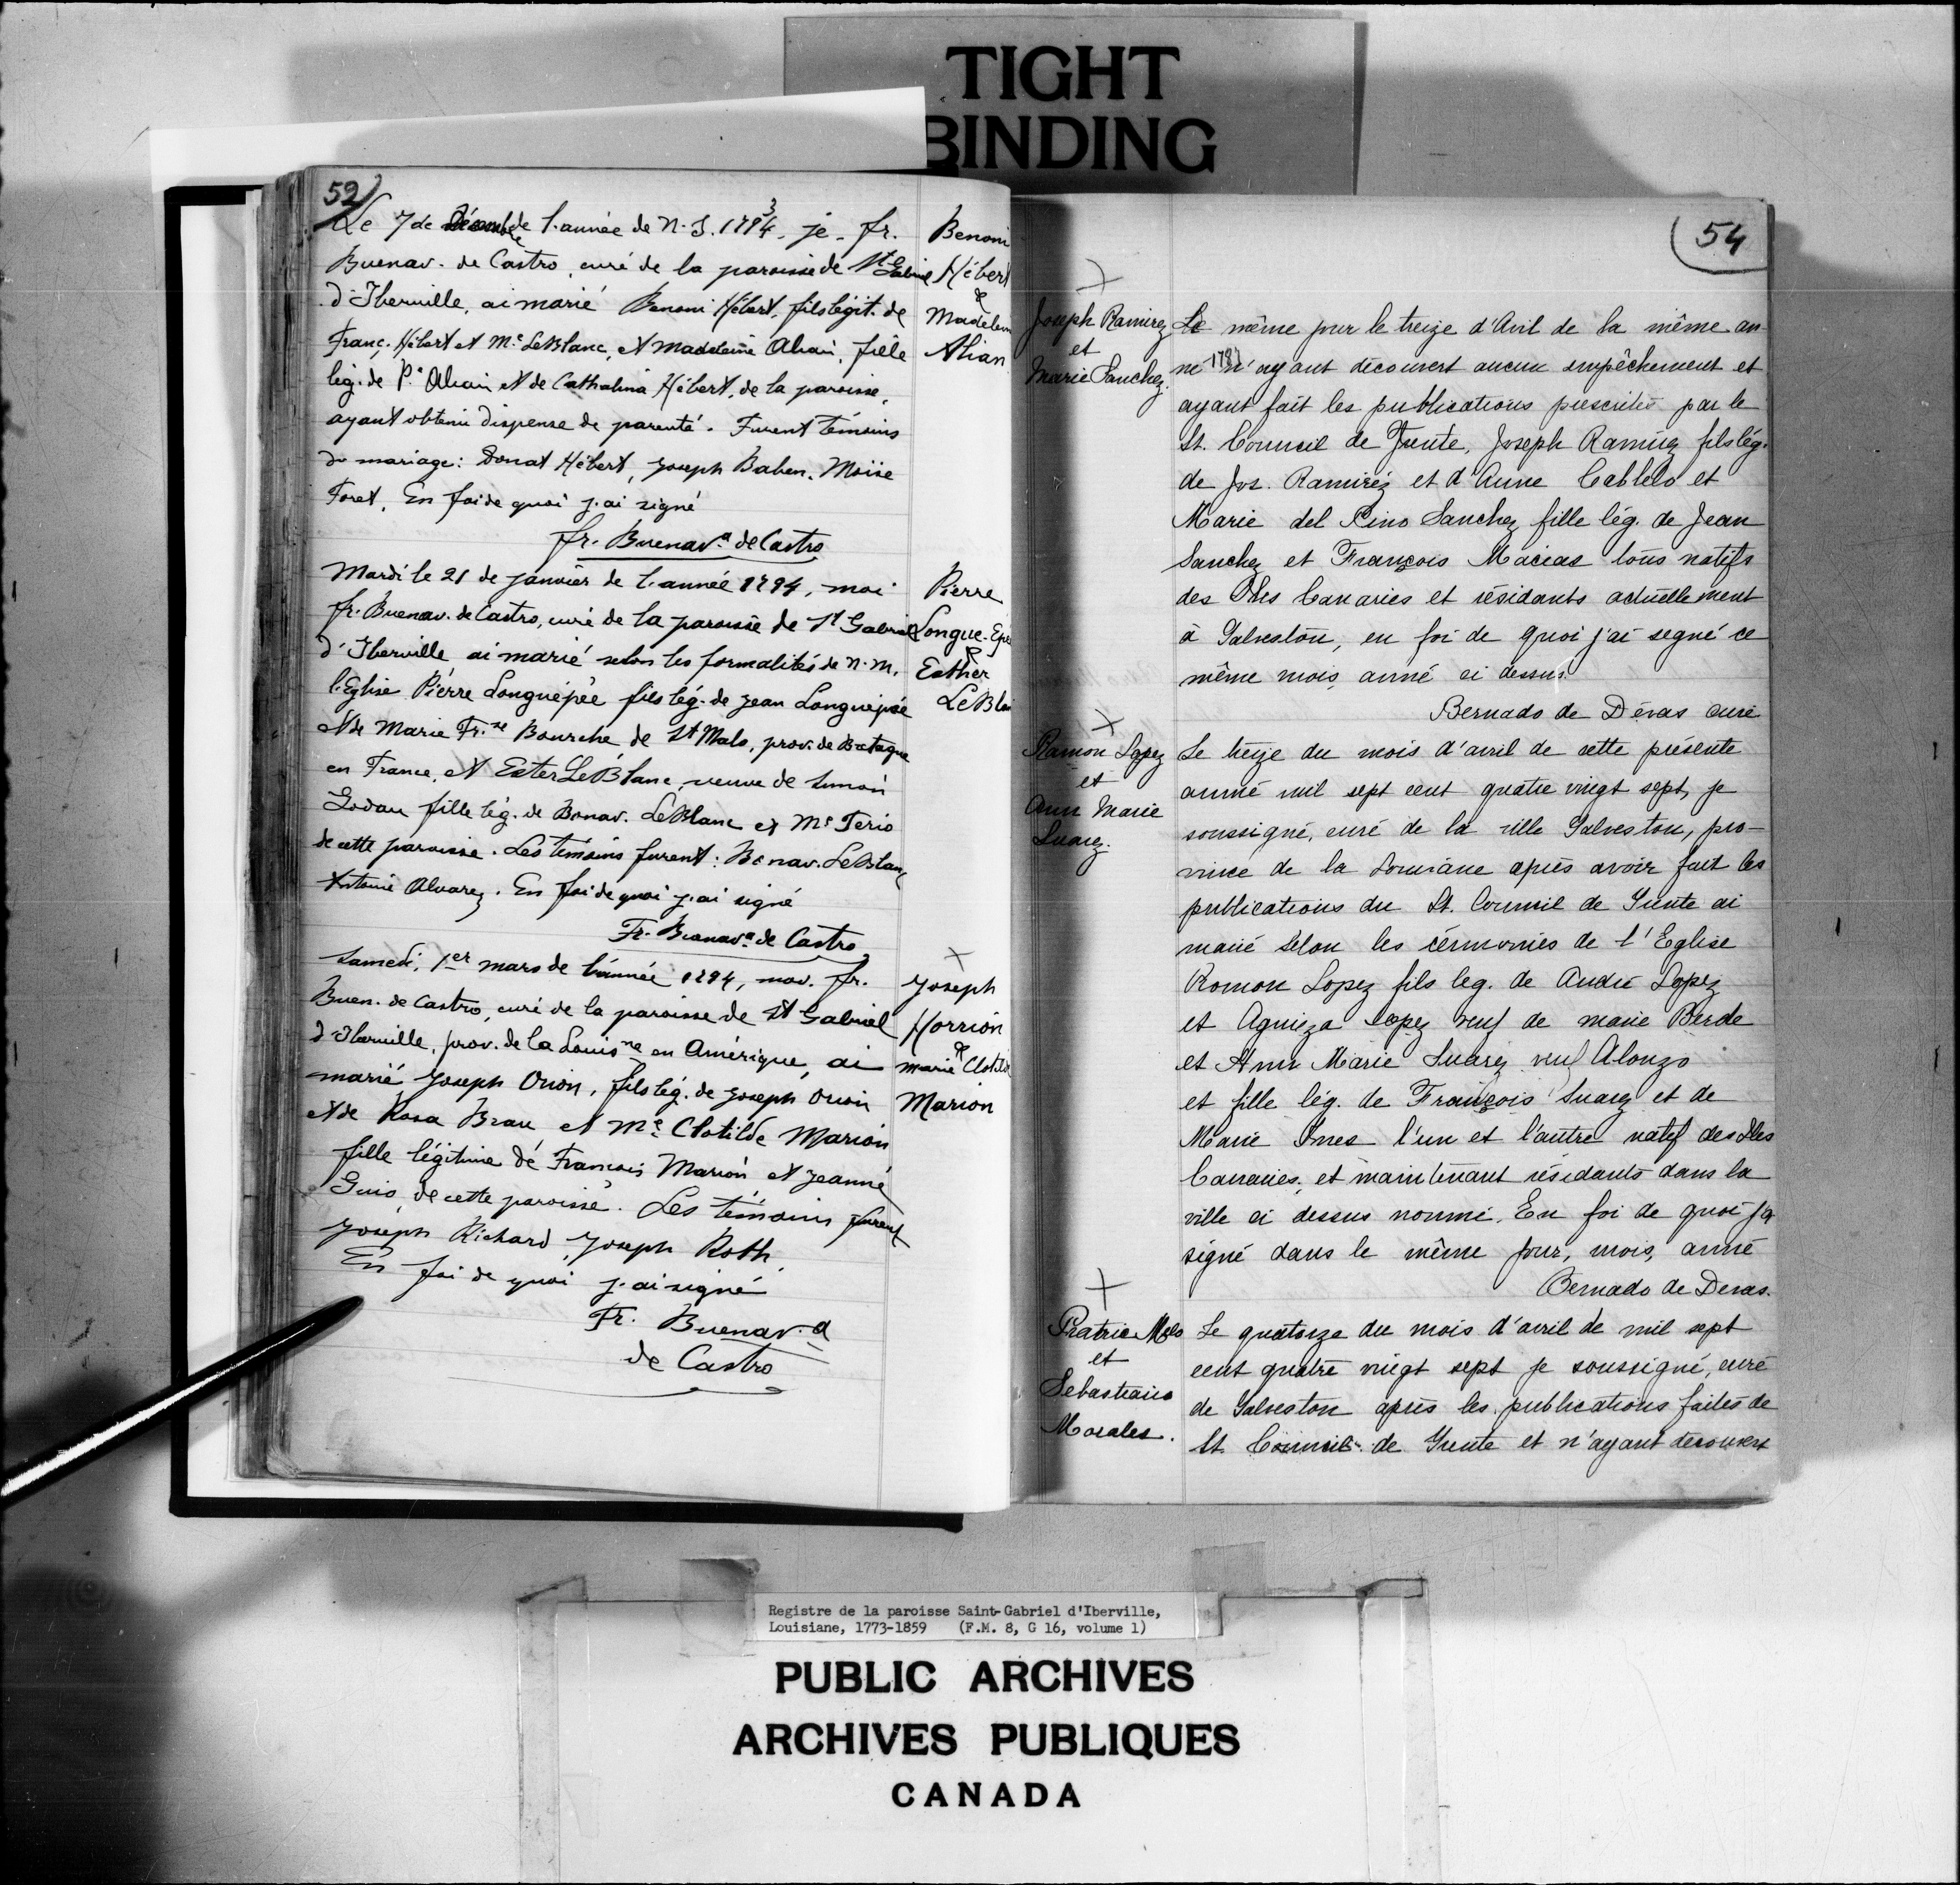 TIGHT
BINDING
52
Le 7 de Décembre de l'année de N. S. 1794 3, je fr.
Buenav. de Castro, curé de la paroisse de St Gabriel
d'Iberville, ai marié Benoni Hébert, fils légit. de
Franç. Hébert et Me LeBlanc, et Madeleine Alhain, fille
lég. de P. Alhain et de Cathalina Hébert, de la paroisse,
ayant obtenu dispense de parenté. Furent témoins
du mariage: Donat Hébert, Joseph Baben, Moïse
Foret, En foi de quoi j'ai signé
fr. Buenava de Castro
Benoni
Hébert
&
Madelein
Alian
Mardi le 21 de janvier de l'année 1794, moi
fr. Buenav. de Castro, curé de la paroisse de St Gabriel
d'Iberville ai marié selon les formalités de N. M.
l'Eglise Pierre Longuépée fils lég. de Jean Longuépée
et de Marie Frse Bourche de St Malo, prov. de Bretagne
en France, et Ester LeBlanc, veuve de Simon
Godau fille lég. de Bonav. LeBlanc et Me Terio
de cette paroisse. Les témoins furent: Bonav. LeBlanc
Antoine Alvarez. En foi de quoi j'ai signé
Fr. Buenava de Castro
Pierre
Longue-Epé
&
Esther
LeBla
Samedi, 1er mars de l'année 1794, moi. fr.
Buen. de Castro, curé de la paroisse de St Gabriel
d'Iberville, prov. de la Louisne en Amérique, ai
marié Joseph Orion, fils lég. de Joseph Orion
et de Rosa Brau et Me Clotilde Marion
fille légitime de François Marion et Jeanne
Guio, de cette paroisse. Les témoins furent
Joseph Richard, Joseph Roth.
En foi de quoi j'ai signé
Fr. Buenav.a
de Castro
Joseph
Horrion
&
marie Clotild
Marion
54
Joseph Ramirez
et
Marie Sanchez.
Le même jour le treize d'Avril de la même an-
né 1787 n'ayant découvert aucun empêchement et
ayant fait les publications prescrites par le
St. Counceil de Trente, Joseph Ramirez fils lég.
de Jos. Ramiréz et d'Anne Cablelo et
Marie del Pino Sanchez fille lég. de Jean
Sanchez et François Macias tous natifs
des Iles Canaries et résidants actuellement
à Galveston, en foi de quoi j'ai segné ce
même mois, anné ci dessus.
Bernado de Dévas curé
Ramon Lopez
et
Ann Marie
Suarez.
Le treize du mois d'avril de cette présente
anné mil sept cent quatre vingt sept, je
soussigné, curé de la ville Galveston, pro-
vince de la Louisiane après avoir fait les
publications du St. Counseil de Trente ai
marié selon les cérmonies de l'Eglise
Romon Lopez fils leg. de André Lopez
et Agnieza Lopez veuf de marie Berde
et Ann Marie Suarez veuf Alonzo
et fille lég. de François Suarez et de
Marie Ines l'un et l'autre natif des Iles
Canaries, et maintenant résidants dans la
ville ci dessus nommé. En foi de quoi j'a
signé dans le même jour, mois, anné
Bernado de Devas.
Pratrice Melo
et
Sebastiano
Morales.
Le quatorze du mois d'avril de mil sept
cent quatre vingt sept je soussigné, curé
de Galveston après les publications faites de
St. Counseil de Trente et n'ayant découvert
Registre de la paroisse Saint-Gabriel d'Iberville,
Louisiane, 1773-1859 (F.M. 8, G 16, volume 1)
PUBLIC ARCHIVES
ARCHIVES PUBLIQUES
CANADA